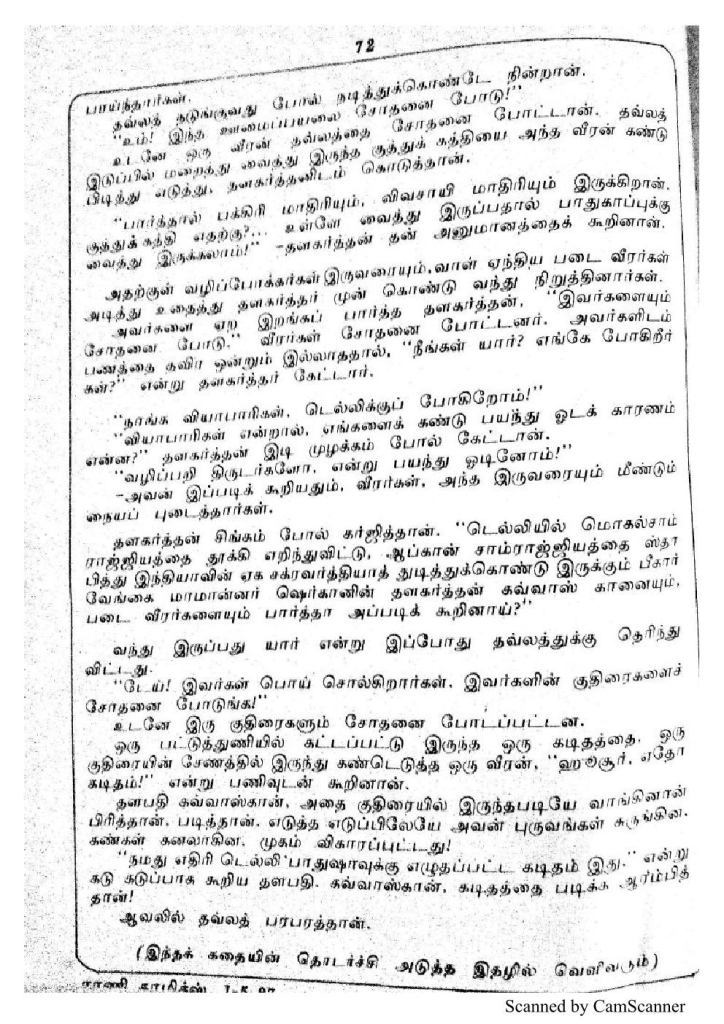 72
பாய்ந்தார்கள்.
தவ்லத் நடுங்குவது போல் நடித்துக்கொண்டே நின்றான்.
"உம்! இந்த ஊமைப்பயலை சோதனை போடு!"
உடனே ஒரு வீரன் தவ்லத்தை சோதனை போட்டான். தவ்லத்
இடுப்பில் மறைத்து வைத்து இருந்த குத்துக் கத்தியை அந்த வீரன் கண்டு
பிடித்து எடுத்து, தளகர்த்தனிடம் கொடுத்தான்.
"பார்த்தால் பக்கிரி மாதிரியும், விவசாயி மாதிரியும் இருக்கிறான்.
குத்துக்கத்தி எதற்கு?... உள்ளே வைத்து இருப்பதால் பாதுகாப்புக்கு
வைத்து இருக்கலாம்!" -தளகர்த்தன் தன் அனுமானத்தைக் கூறினான்.
அதற்குள் வழிப்போக்கர்கள் இருவரையும், வாள் ஏந்திய படை வீரர்கள்
அடித்து உதைத்து தளகர்த்தர் முன் கொண்டு வந்து நிறுத்தினார்கள்.
அவர்களை ஏற இறங்கப் பார்த்த தளகர்த்தன், "இவர்களையும்
சோதனை போடு." வீரர்கள் சோதனை போட்டனர். அவர்களிடம்
பணத்தை தவிர ஒன்றும் இல்லாததால், "நீங்கள் யார்? எங்கே போகிறீர்
கள்?" என்று தளகர்த்தர் கேட்டார்.
"நாங்க வியாபாரிகள், டெல்லிக்குப் போகிறோம்!"
"வியாபாரிகள் என்றால், எங்களைக் கண்டு பயந்து ஓடக் காரணம்
என்ன?" தளகர்த்தன் இடி முழக்கம் போல் கேட்டான்.
"வழிப்பறி திருடர்களோ, என்று பயந்து ஓடினோம்!"
-அவன் இப்படிக் கூறியதும், வீரர்கள், அந்த இருவரையும் மீண்டும்
நையப் புடைத்தார்கள்.
தளகர்த்தன் சிங்கம் போல் கர்ஜித்தான். "டெல்லியில் மொகல்சாம்
ராஜ்ஜியத்தை தூக்கி எறிந்துவிட்டு, ஆப்கான் சாம்ராஜ்ஜியத்தை ஸ்தா
பித்து இந்தியாவின் ஏக சக்ரவர்த்தியாத் துடித்துக்கொண்டு இருக்கும் பீகார்
வேங்கை மாமான்னர் ஷெர்கானின் தளகர்த்தன் கவ்வாஸ் கானையும்,
படை வீரர்களையும் பார்த்தா அப்படிக் கூறினாய்?"
வந்து இருப்பது யார் என்று இப்போது தவ்லத்துக்கு தெரிந்து
விட்டது.
"டேய்! இவர்கள் பொய் சொல்கிறார்கள். இவர்களின் குதிரைகளைச்
சோதனை போடுங்க!"
உடனே இரு குதிரைகளும் சோதனை போடப்பட்டன.
ஒரு பட்டுத்துணியில் கட்டப்பட்டு இருந்த ஒரு கடிதத்தை, ஒரு
குதிரையின் சேணத்தில் இருந்து கண்டெடுத்த ஒரு வீரன், "ஹுசூர், ஏதோ
கடிதம்!" என்று பணிவுடன் கூறினான்.
தளபதி கவ்வாஸ்கான், அதை குதிரையில் இருந்தபடியே வாங்கினான்
பிரித்தான். படித்தான். எடுத்த எடுப்பிலேயே அவன் புருவங்கள் சுருங்கின.
கண்கள் கனலாகின. முகம் விகாரப்புட்டது!
"நமது எதிரி டெல்லி பாதுஷாவுக்கு எழுதப்பட்ட கடிதம் இது." என்று
கடு கடுப்பாக கூறிய தளபதி. கவ்வாஸ்கான், கடிதத்தை படிக்க ஆரம்பித்
தான்!
ஆவலில் தவ்லத் பரபரத்தான்.
(இந்தக் கதையின் தொடர்ச்சி அடுத்த இதழில் வெளிவரும்)
ராணி காமிக்ஸ் 1-5-97
Scanned by CamScanner